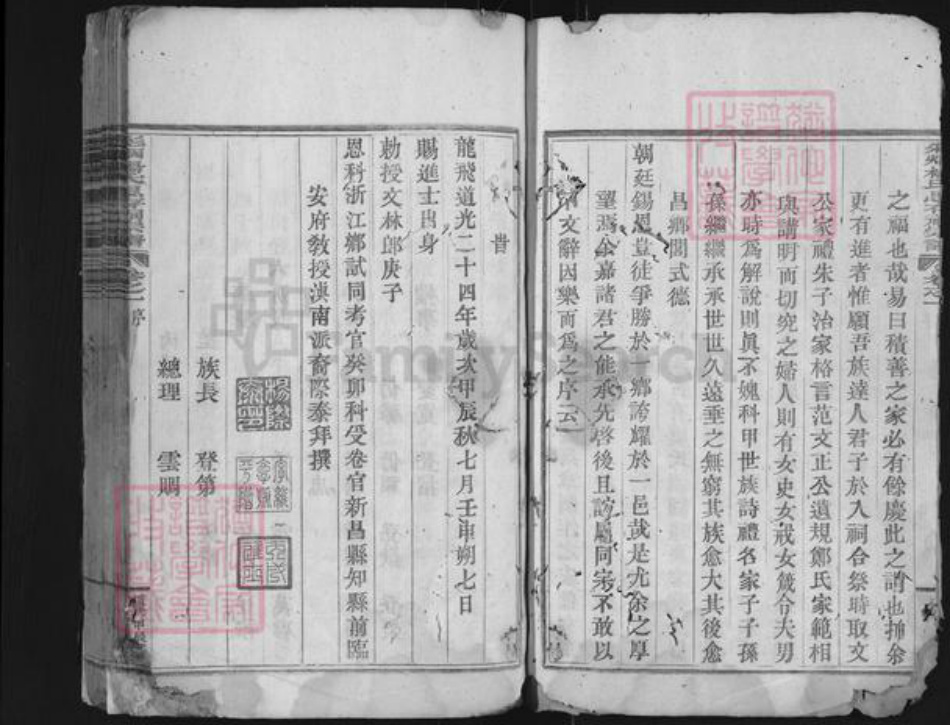 之福也哉易曰積善之家必有餘慶此之謂也抑余
更有進者惟願吾族達人君子於入祠合祭時取文
公家禮朱子治家格言范文正公遺規鄭氏家範相
與講明而切究之婦人則有女史女戒女箴令夫男
亦時為解說則真不媿科甲世族詩禮名家子子孫
孫繼繼承承世世久遠垂之無窮其族愈大其後愈
昌鄉閭式德
朝廷錫恩豈徒爭勝於一鄉誇耀於一邑哉是尤余之厚
望焉余嘉諸君之能承先啓後且誼屬同宗不敢以
文辭因樂而為之序云
旹
龍飛道光二十四年歲次甲辰秋七月壬申朔七日
賜進士出身
勅授文林郎庚子
恩科浙江鄉試同考官癸卯科受卷官新昌縣知縣前臨
安府教授滇南派裔際泰拜撰
族長 登第
總理 雲賜
FamilySearch